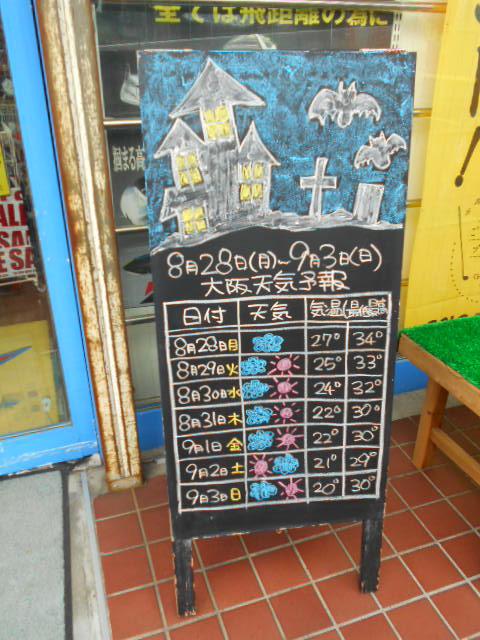 全ては飛距離の為に
8月28日(月)~9月3日(日)
大阪 天気予報
日付 天気 気温(最低/最高)
8月28日月 27° 34°
8月29日火 25° 33°
8月30日水 24° 32°
8月31日木 22° 30°
9月1日金 22° 30°
9月2日土 21° 29°
9月3日日 20° 30°